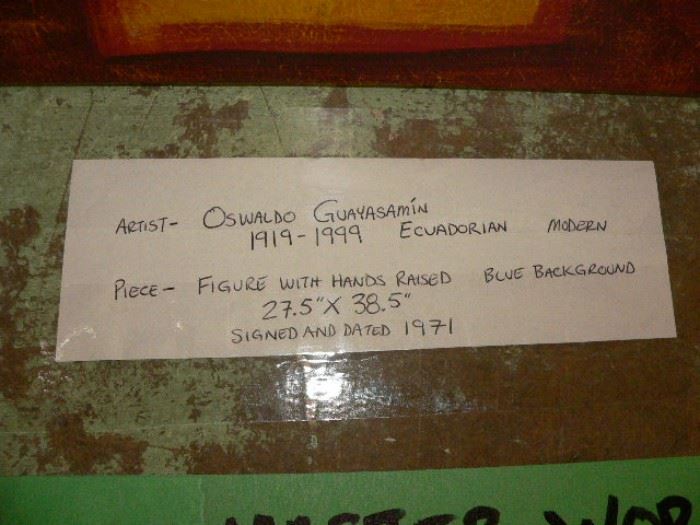 ARTIST- OSWALDO GUAYASAMÍN
1919-1999 ECUADORIAN MODERN
PIECE- FIGURE WITH HANDS RAISED BLUE BACKGROUND
27.5"X 38.5"
SIGNED AND DATED 1971
MASTER